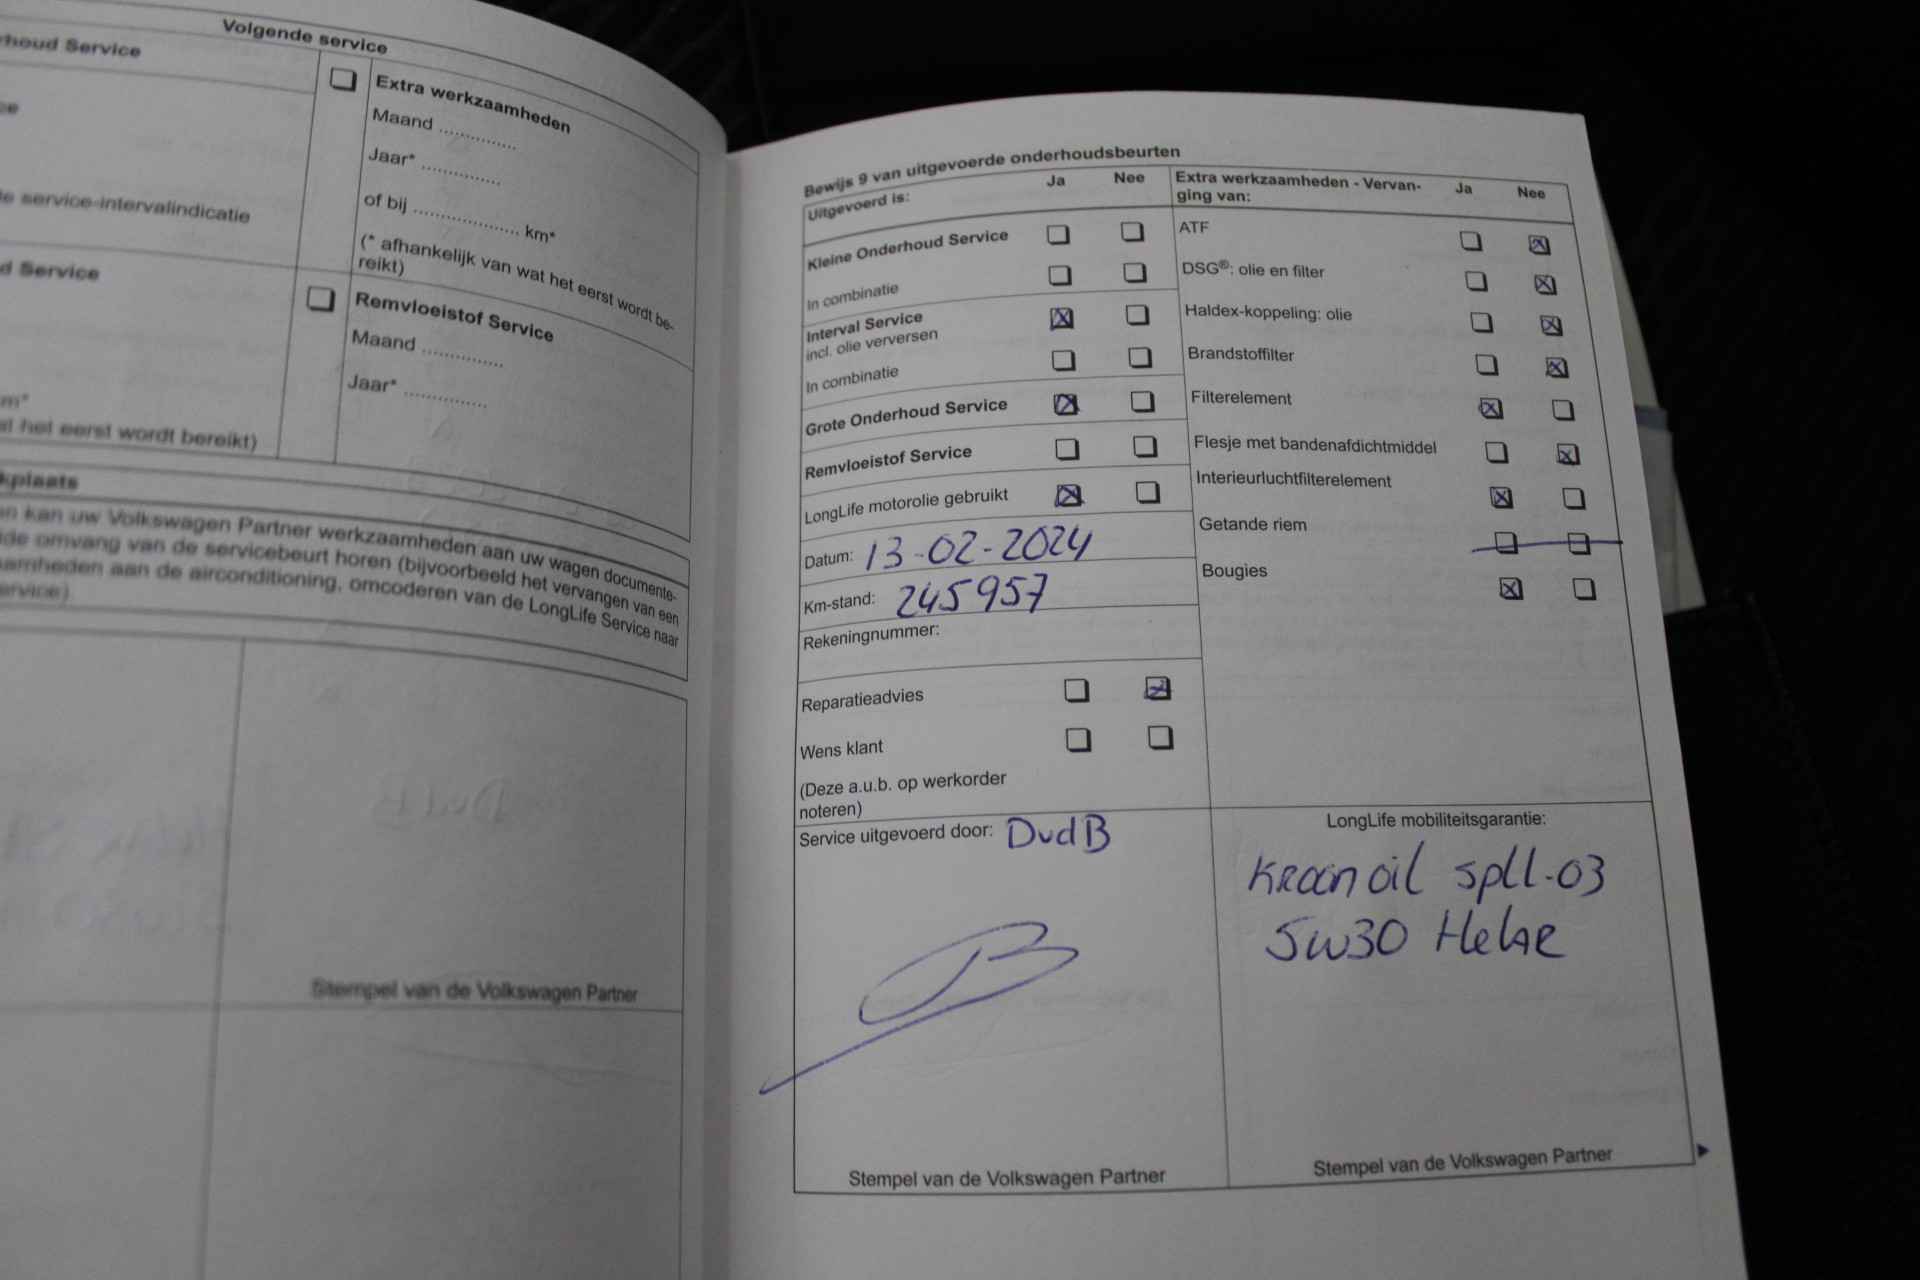 Volgende service
rhoud Service
Extra werkzaamheden
Maand ...............
Jaar* ...............
of bij .................... km*
(* afhankelijk van wat het eerst wordt be-
reikt)
ce
de service-intervalindicatie
d Service
Remvloeistof Service
Maand ...............
Jaar* ...............
m*
at het eerst wordt bereikt)
kplaats
en kan uw Volkswagen Partner werkzaamheden aan uw wagen documente-
de omvang van de servicebeurt horen (bijvoorbeeld het vervangen van een
aamheden aan de airconditioning, omcoderen van de LongLife Service naar
ervice).
Stempel van de Volkswagen Partner
Bewijs 9 van uitgevoerde onderhoudsbeurten
Uitgevoerd is: Ja Nee
Kleine Onderhoud Service
In combinatie
Interval Service
incl. olie verversen
In combinatie
Grote Onderhoud Service
Remvloeistof Service
LongLife motorolie gebruikt
Datum: 13-02-2024
Km-stand: 245957
Rekeningnummer:
Reparatieadvies
Wens klant
(Deze a.u.b. op werkorder
noteren)
Extra werkzaamheden - Vervan-
ging van: Ja Nee
ATF
DSG®: olie en filter
Haldex-koppeling: olie
Brandstoffilter
Filterelement
Flesje met bandenafdichtmiddel
Interieurluchtfilterelement
Getande riem
Bougies
Service uitgevoerd door: DvdB
Stempel van de Volkswagen Partner
LongLife mobiliteitsgarantie:
Kroon oil spll-03
5W30 Helar
Stempel van de Volkswagen Partner